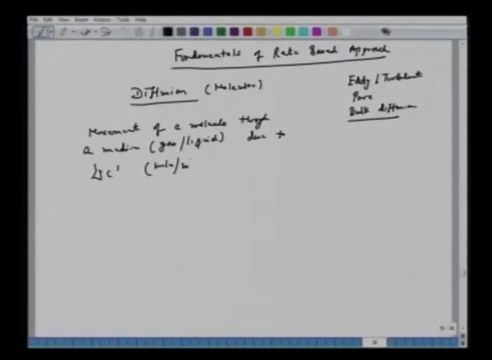 File Edit View Insert Actions Tools Help
Fundamentals of Rate Based Approach
Diffusion (Molecular)
Eddy / Turbulent
Pore
Bulk diffusion
Movement of a molecule through
a medium (gas/liquid) due to